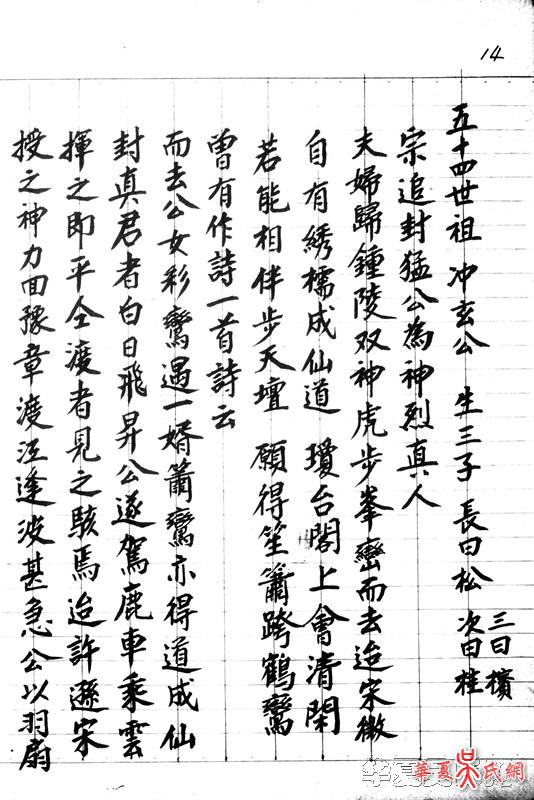 14
授之神力回豫章渡江逢波甚急公以羽扇
揮之即平仝渡者見之駭焉迨許遜宋
封真君者白日飛昇公遂駕鹿車乘雲
而去公女彩鸞遇一婿簫鸞亦得道成仙
曾有作詩一首詩云
若能相伴步天壇 願得笙簫跨鶴鸞
自有綉襦成仙道 瓊台閣上會清閑
夫婦歸鍾陵双神虎步峯巒而去迨宋徽
宗追封猛公為神烈真人
五十四世祖 冲玄公 生三子 長曰松 次曰桂 三曰檳
華夏吳氏網